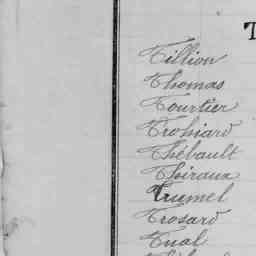 T
Tillion
Thomas
Tourtier
Trohiard
Thébault
Thiraux
Trumel
Trosard
Tual